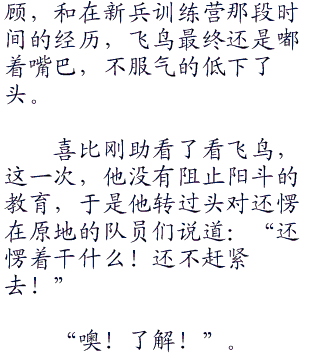 顾，和在新兵训练营那段时
间的经历，飞鸟最终还是嘟
着嘴巴，不服气的低下了
头。
喜比刚助看了看飞鸟，
这一次，他没有阻止阳斗的
教育，于是他转过头对还愣
在原地的队员们说道：“还
愣着干什么！还不赶紧
去！”
“噢！了解！”。